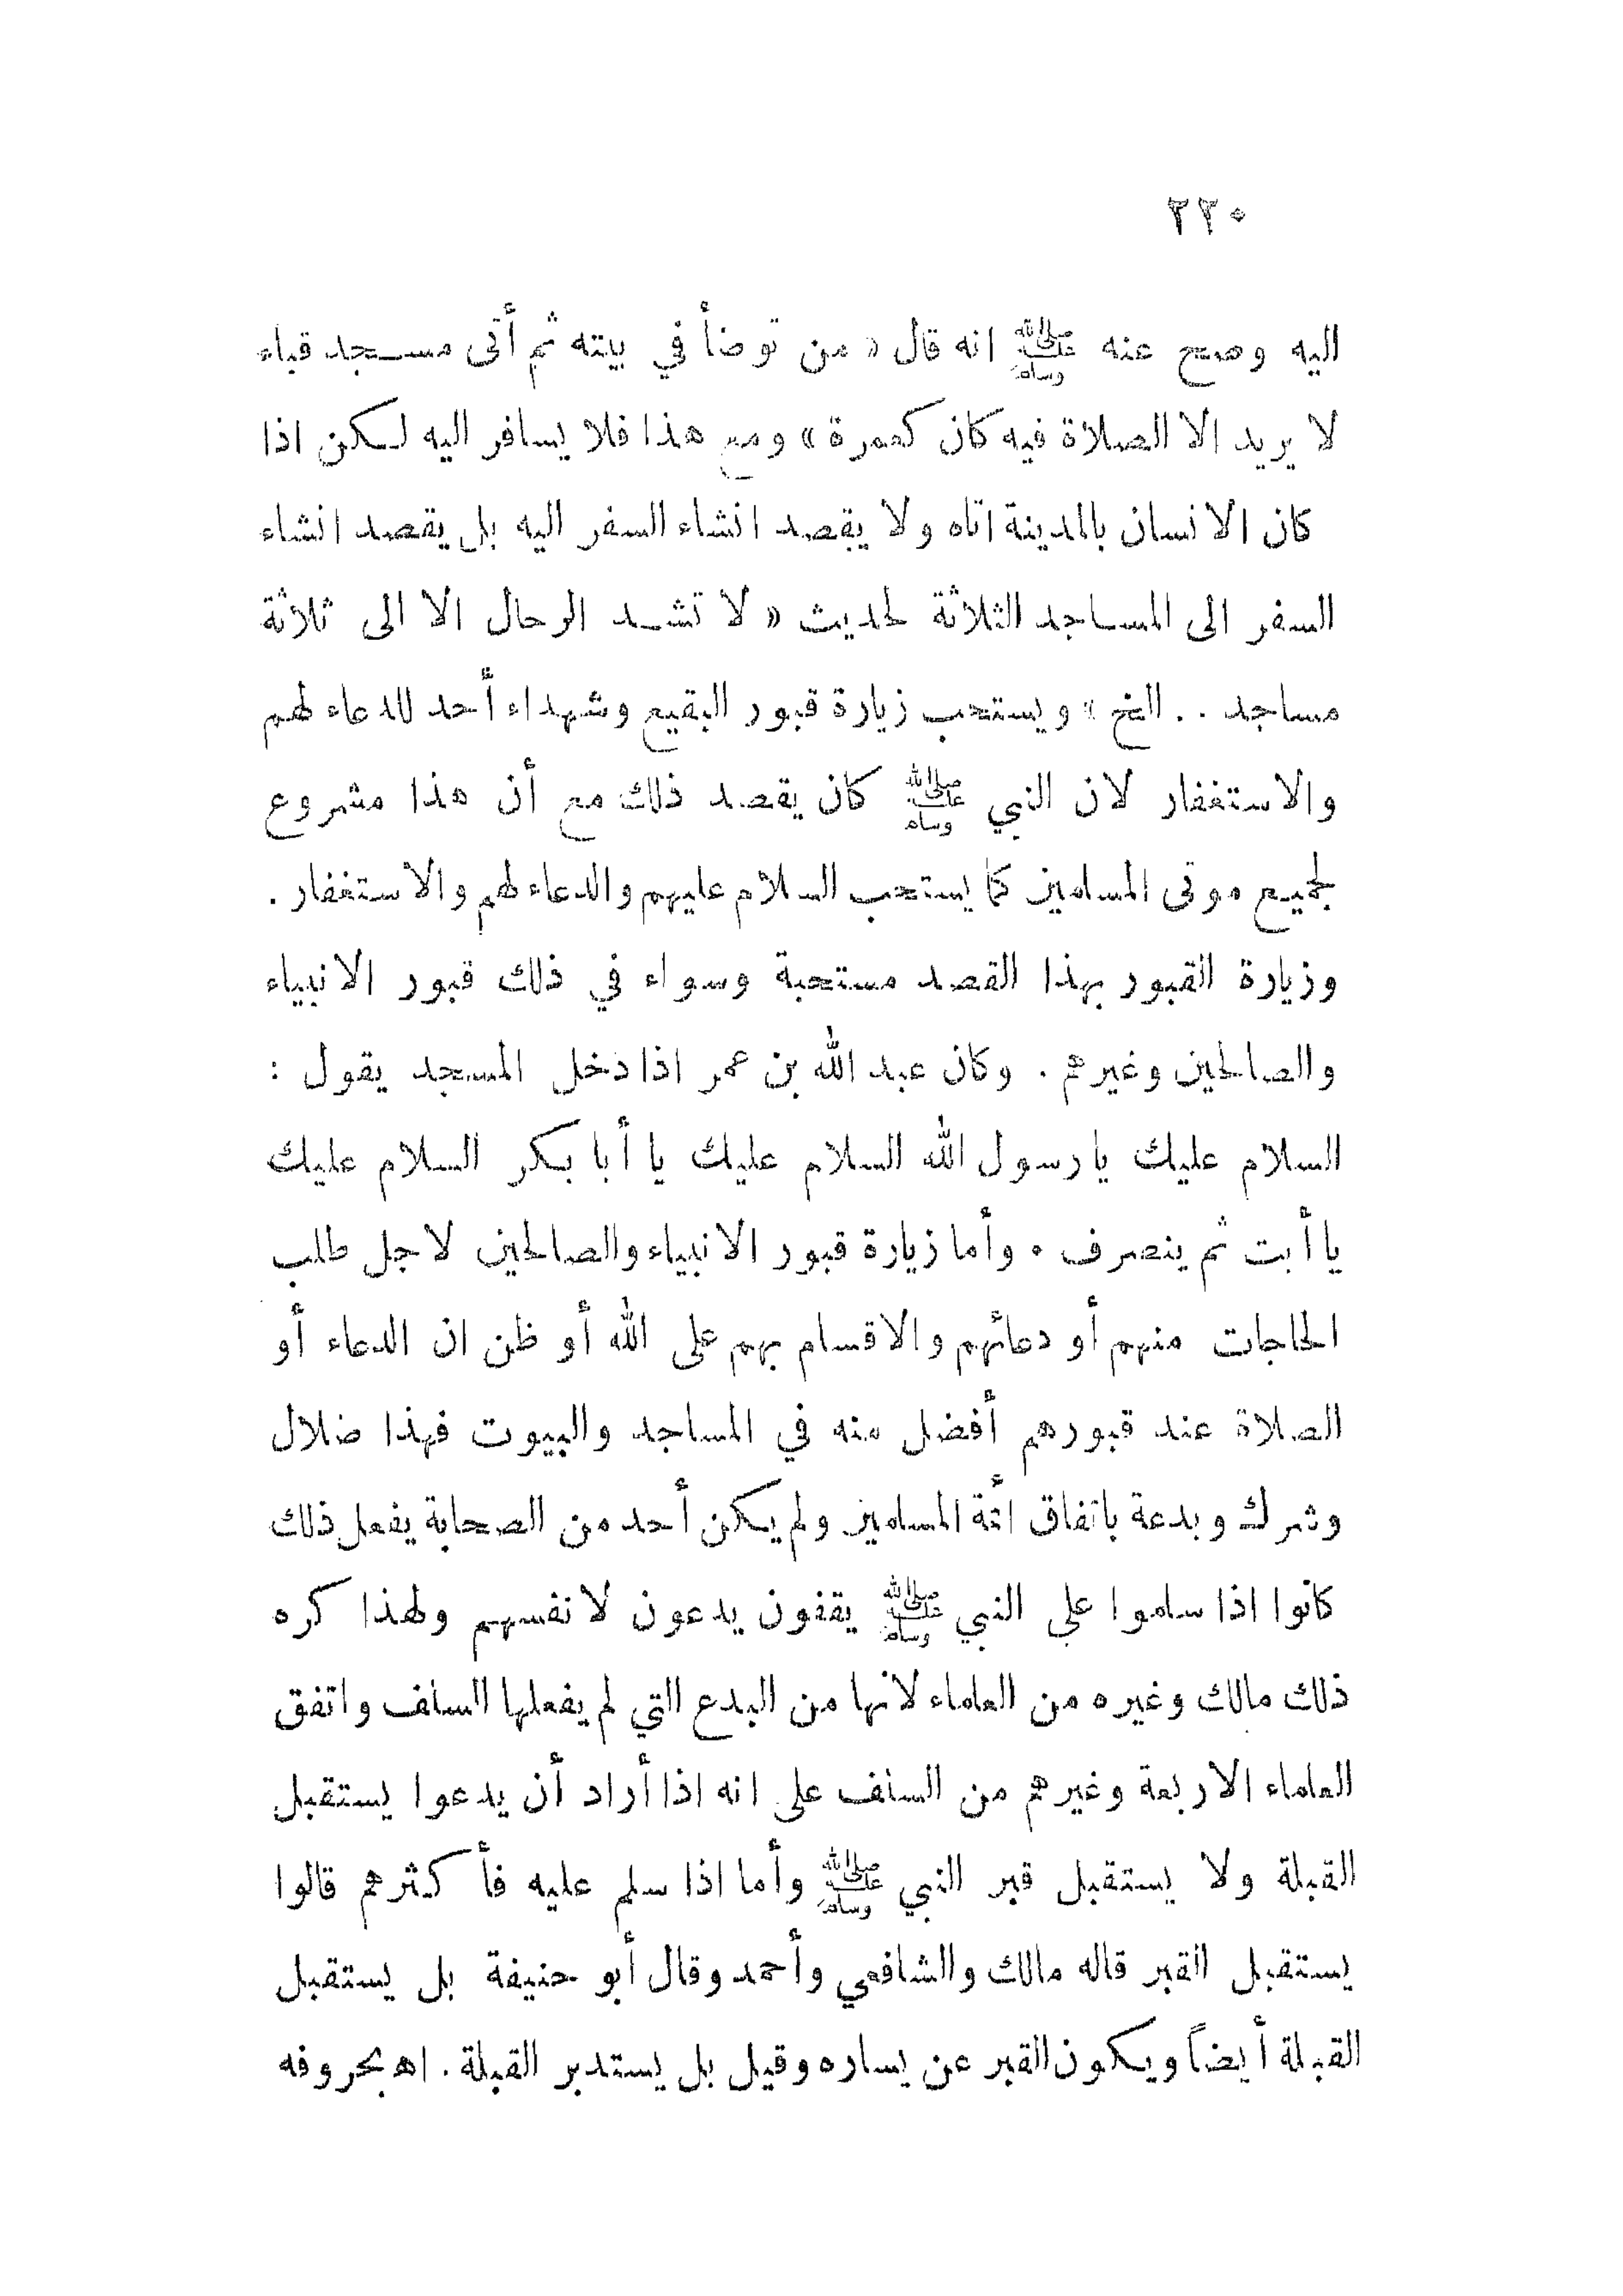 ٢٢٠
اليه وصح عنه ﷺ انه قال « من توضأ في بيته ثم أتى مسجد قباء
لا يريد الا الصلاة فيه كان كعمرة » ومع هذا فلا يسافر اليه لكن اذا
كان الانسان بالمدينة اتاه ولا يقصد انشاء السفر اليه بل يقصد انشاء
السفر الى المساجد الثلاثة لحديث « لا تشد الرحال الا الى ثلاثة
مساجد . . الخ » ويستحب زيارة قبور البقيع وشهداء أحد للدعاء لهم
والاستغفار لان النبي ﷺ كان يقصد ذلك مع أن هذا مشروع
لجميع موتى المسلمين كما يستحب السلام عليهم والدعاء لهم والاستغفار .
وزيارة القبور بهذا القصد مستحبة وسواء في ذلك قبور الانبياء
والصالحين وغيرهم . وكان عبد الله بن عمر اذا دخل المسجد يقول :
السلام عليك يا رسول الله السلام عليك يا أبا بكر السلام عليك
يا أبت ثم ينصرف . وأما زيارة قبور الانبياء والصالحين لاجل طلب
الحاجات منهم أو دعائهم والاقسام بهم على الله أو ظن ان الدعاء أو
الصلاة عند قبورهم أفضل منه في المساجد والبيوت فهذا ضلال
وشرك وبدعة باتفاق أئمة المسلمين ولم يكن أحد من الصحابة يفعل ذلك
كانوا اذا سلموا على النبي ﷺ يقفون يدعون لانفسهم ولهذا كره
ذلك مالك وغيره من العلماء لانها من البدع التي لم يفعلها السلف واتفق
العلماء الاربعة وغيرهم من السلف على انه اذا أراد أن يدعوا يستقبل
القبلة ولا يستقبل قبر النبي ﷺ وأما اذا سلم عليه فأكثرهم قالوا
يستقبل القبر قاله مالك والشافعي وأحمد وقال أبو حنيفة بل يستقبل
القبلة أيضاً ويكون القبر عن يساره وقيل بل يستدبر القبلة . اهـ بحروفه